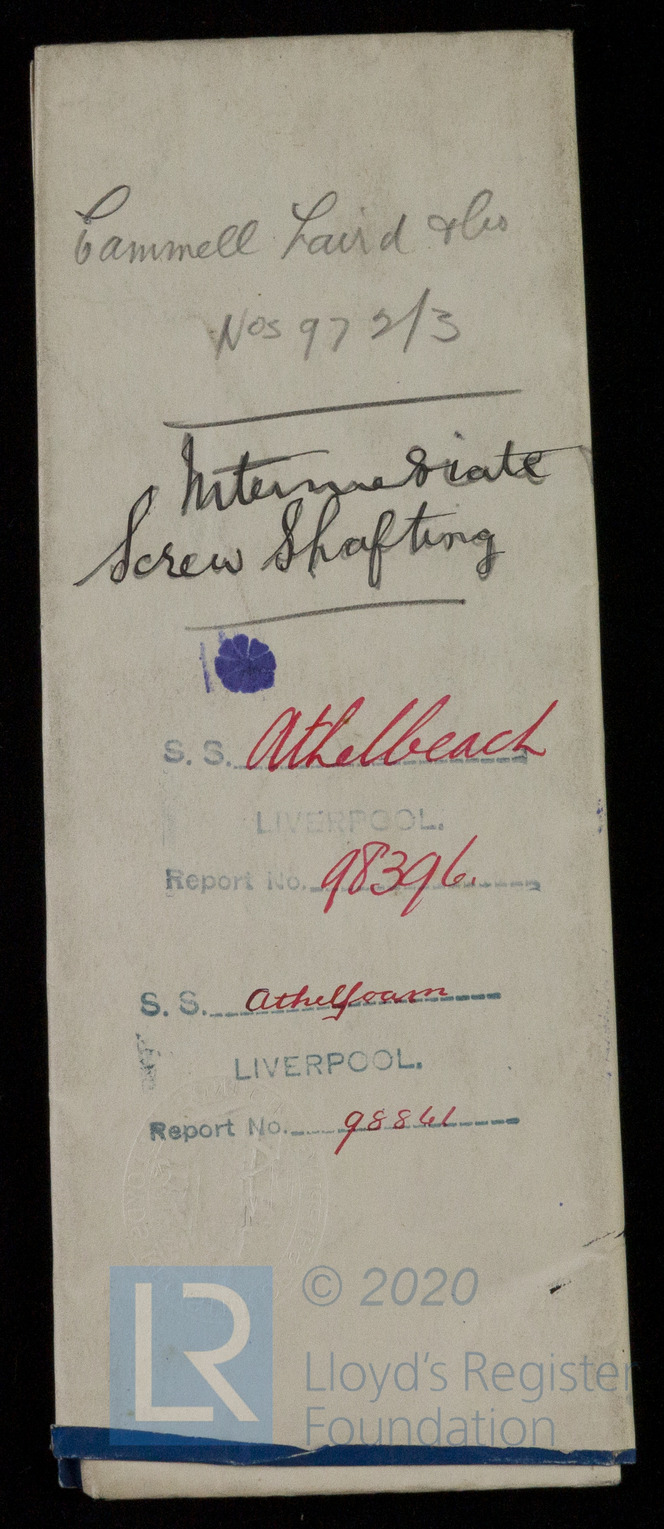 Cammell Laird & Co
Nos 972/3
Intermediate
Screw Shafting
S. S. Athelbeach
LIVERPOOL.
Report No. 98396.
S. S. Athelfoam
LIVERPOOL.
Report No. 98861
LR
© 2020
Lloyd's Register
Foundation